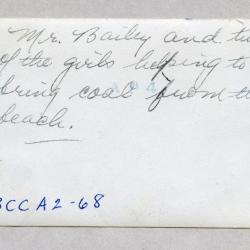 Mr. Bailey and tw
of the girls helping to
bring coal from th
beach.
A 94
BCCA2-68